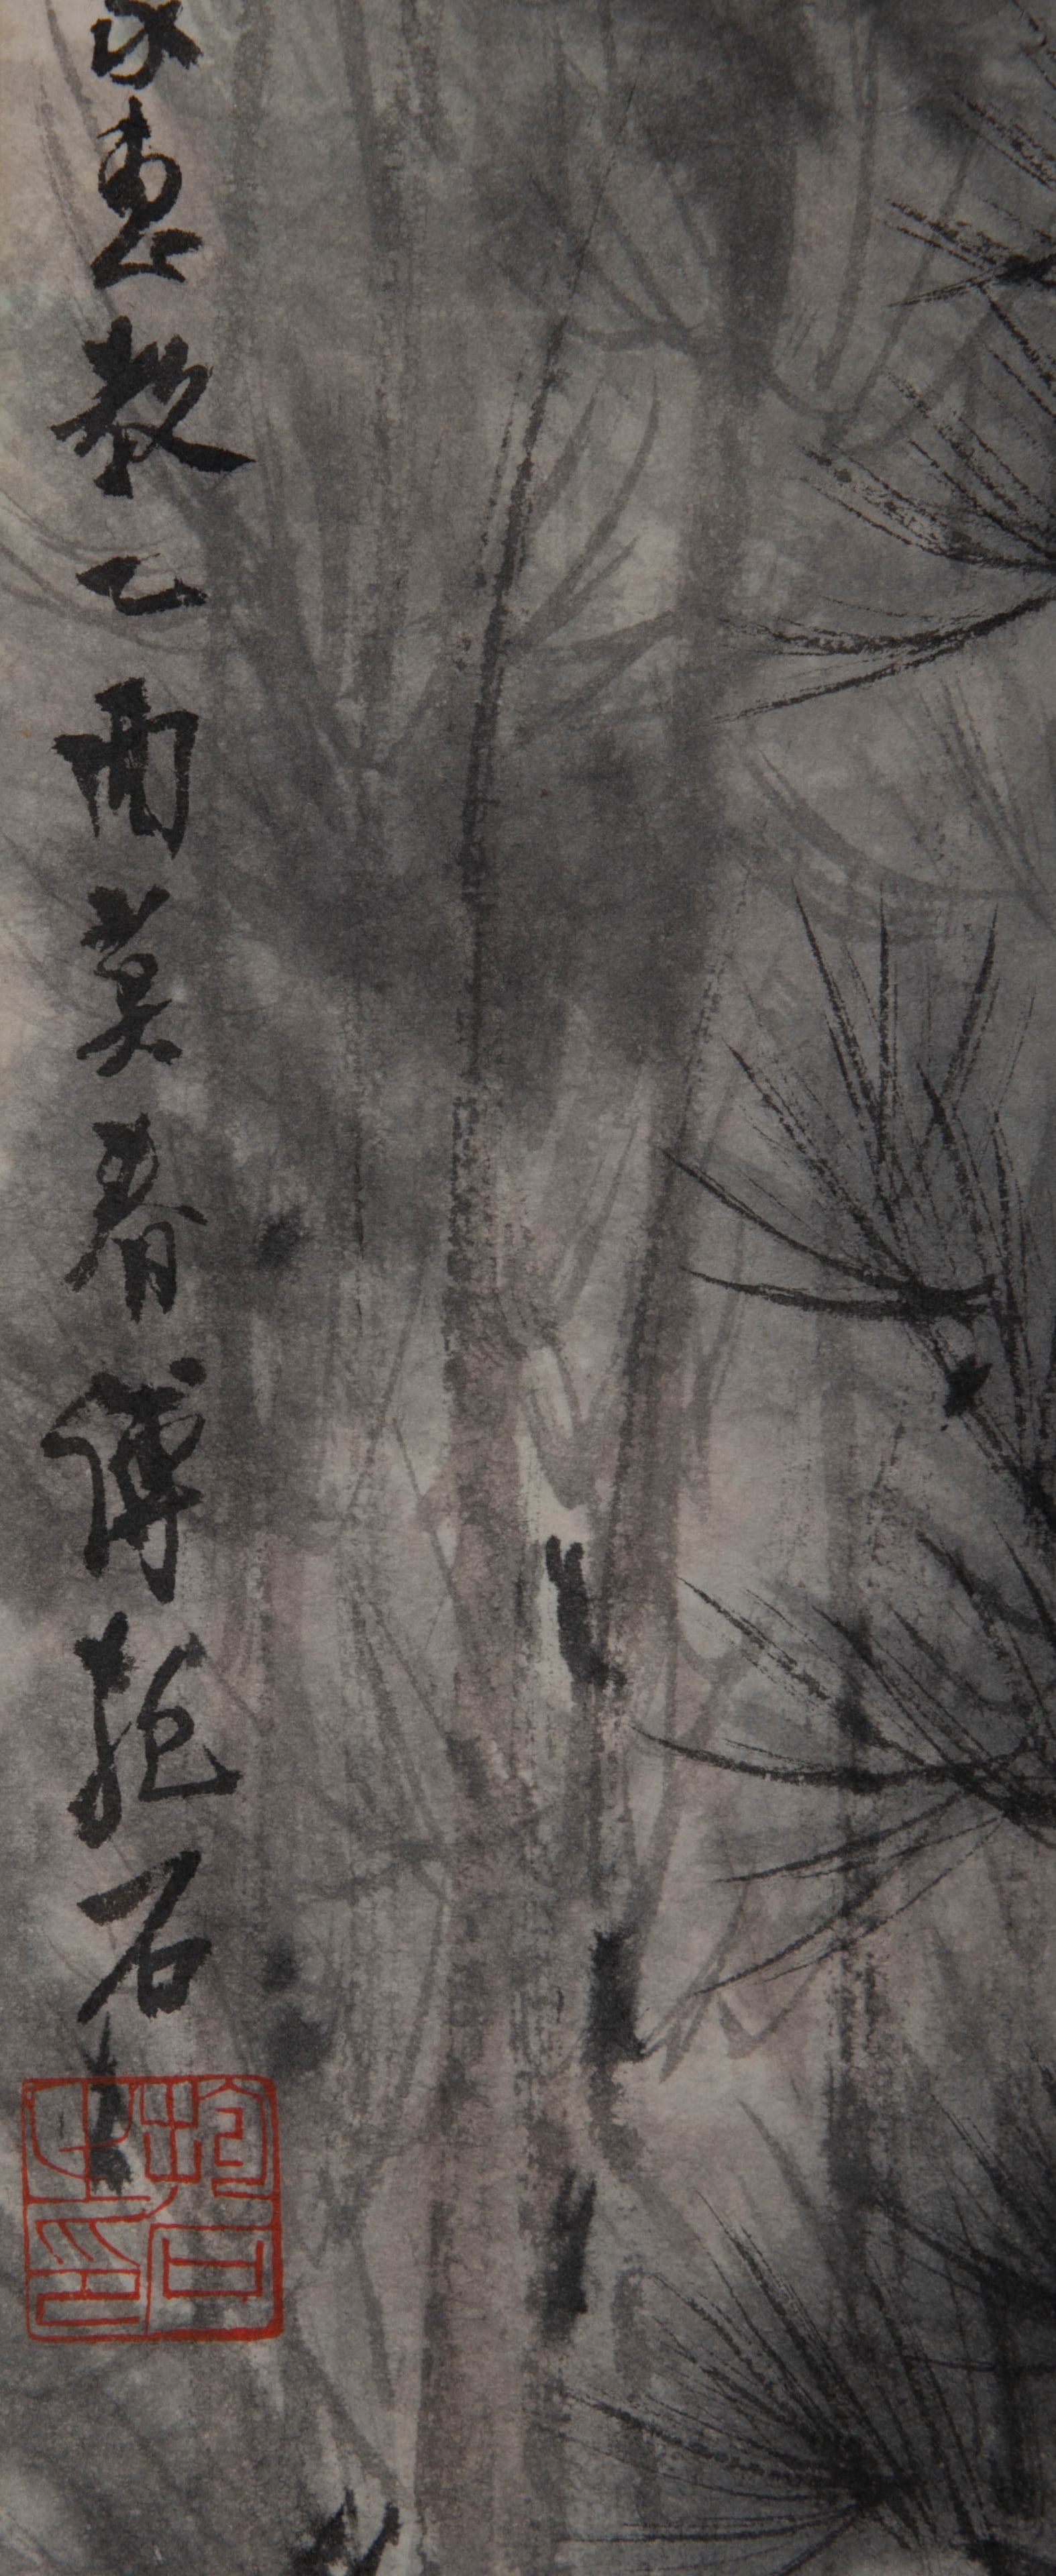 惠教乙酉莫春傅抱石
抱石之印